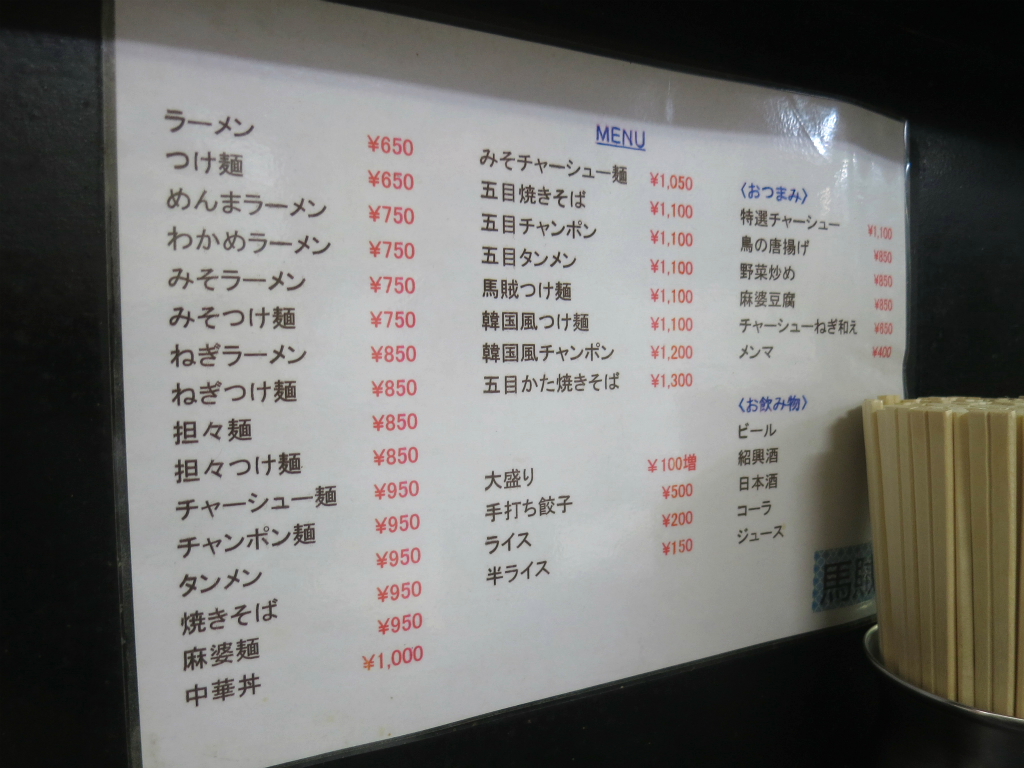 MENU
ラーメン ¥650
つけ麺 ¥650
めんまラーメン ¥750
わかめラーメン ¥750
みそラーメン ¥750
みそつけ麺 ¥750
ねぎラーメン ¥850
ねぎつけ麺 ¥850
担々麺 ¥850
担々つけ麺 ¥850
チャーシュー麺 ¥950
チャンポン麺 ¥950
タンメン ¥950
焼きそば ¥950
麻婆麺 ¥950
中華丼 ¥1,000
みそチャーシュー麺 ¥1,050
五目焼きそば ¥1,100
五目チャンポン ¥1,100
五目タンメン ¥1,100
馬賊つけ麺 ¥1,100
韓国風つけ麺 ¥1,100
韓国風チャンポン ¥1,200
五目かた焼きそば ¥1,300
大盛り ¥100増
手打ち餃子 ¥500
ライス ¥200
半ライス ¥150
〈おつまみ〉
特選チャーシュー ¥1,100
鳥の唐揚げ ¥850
野菜炒め ¥850
麻婆豆腐 ¥850
チャーシューねぎ和え ¥650
メンマ ¥400
〈お飲み物〉
ビール
紹興酒
日本酒
コーラ
ジュース
馬賊